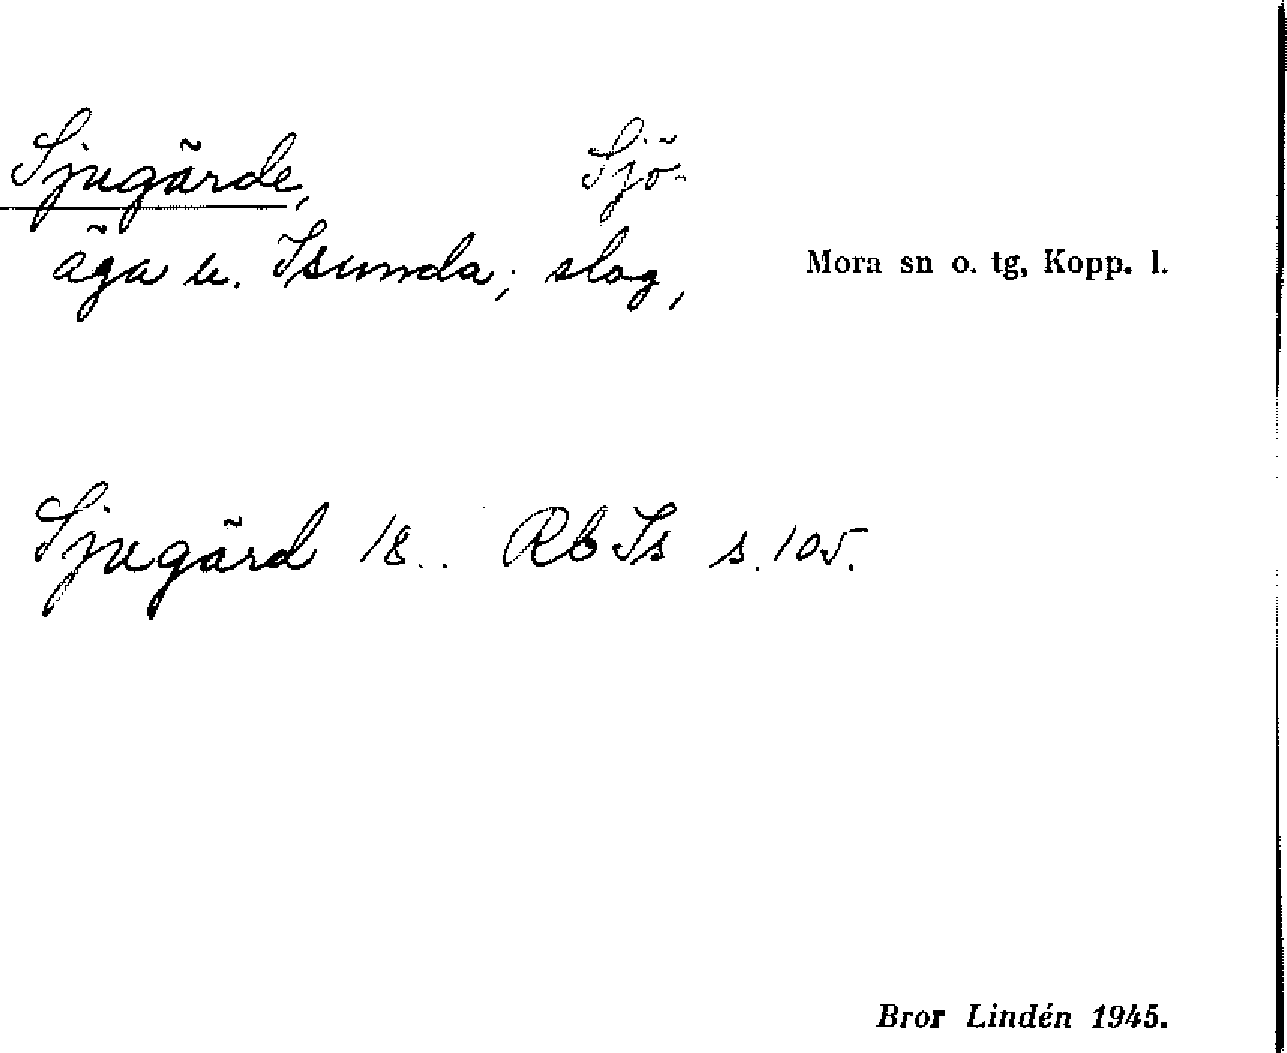 Sjugärde, Sjö-
äga u. Isunda; slog,
Mora sn o. tg, Kopp. l.
Sjugärd 18.. Rb Is s. 105.
Bror Lindén 1945.